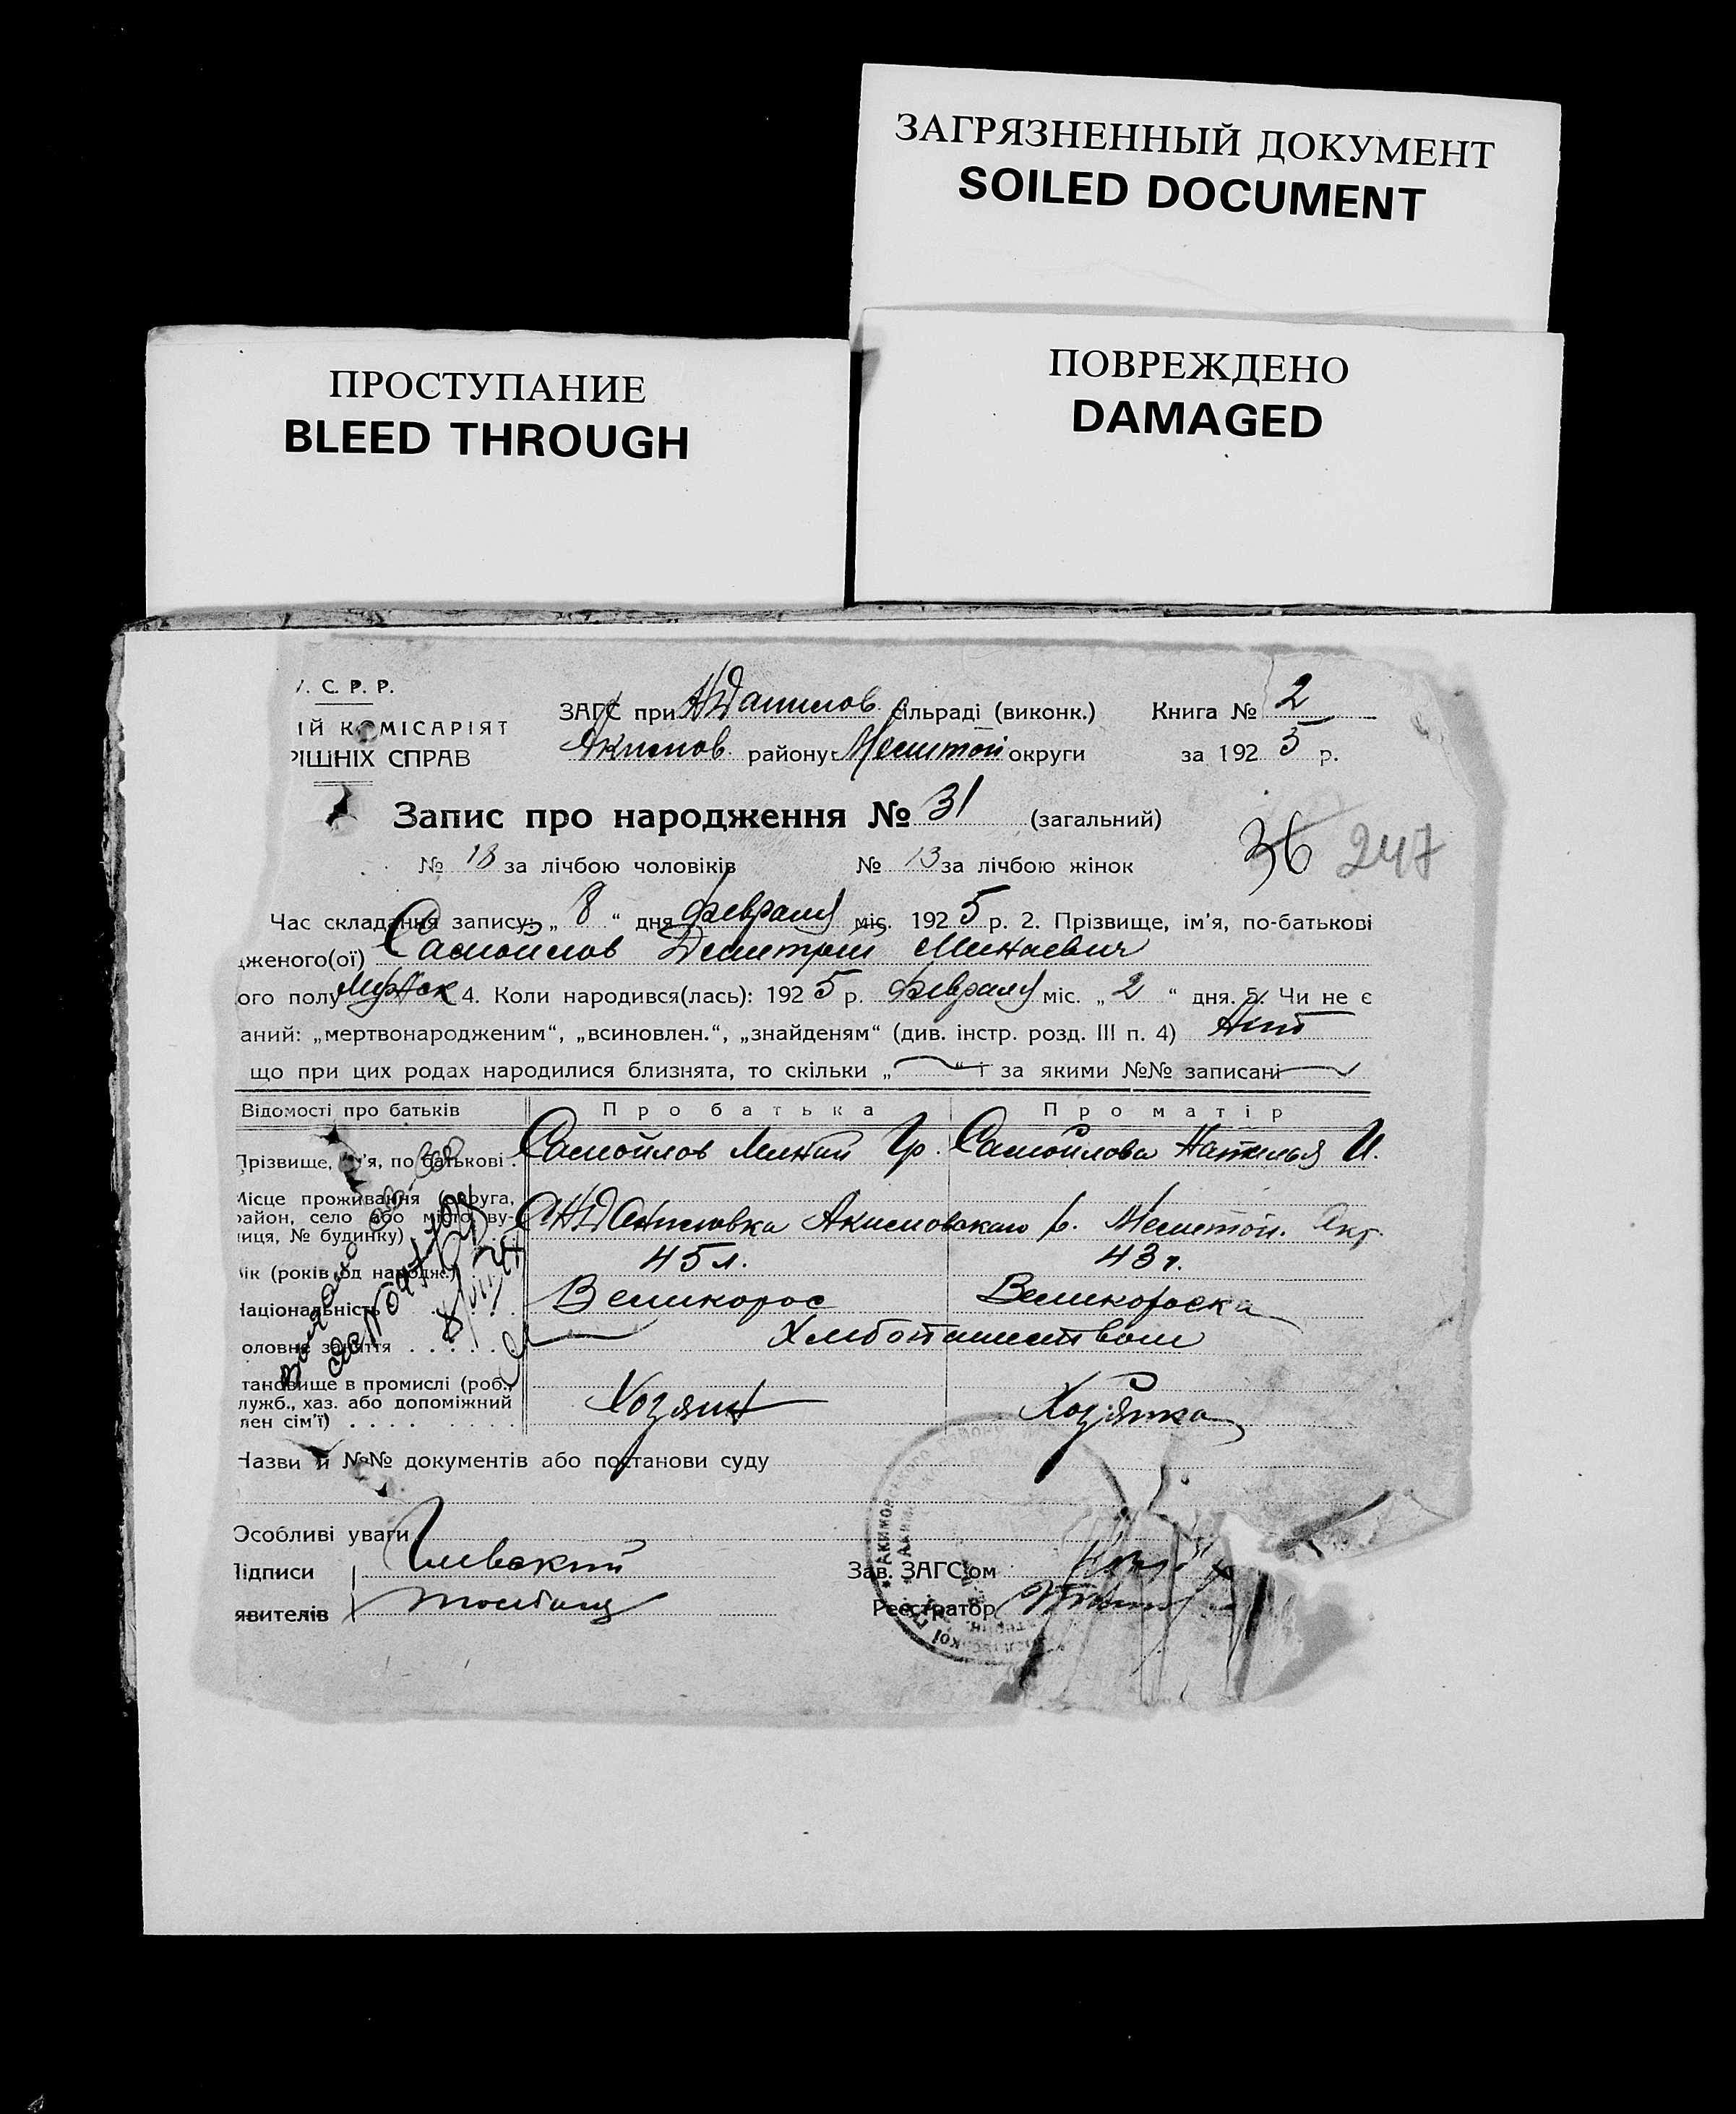 ЗАГРЯЗНЕННЫЙ ДОКУМЕНТ
SOILED DOCUMENT
ПРОСТУПАНИЕ
BLEED THROUGH
ПОВРЕЖДЕНО
DAMAGED
. С. Р. Р.
ІЙ КОМІСАРІЯТ
РІШНІХ СПРАВ
ЗАГС при НДанилов. сільраді (виконк.) Книга № 2
Акимов. району Мелитой округи за 1925 р.
Запис про народження № 31 (загальний)
№ 18 за лічбою чоловіків № 13 за лічбою жінок
36 247
Час складання запису: „ 8 “ дня февраля міс. 1925 р. 2. Прізвище, ім'я, по-батькові
дженого(ої) Самойлов Дмитрий Минаевич
ого полу Мужск 4. Коли народився(лась): 1925 р. февраля міс. „ 2 “ дня. 5. Чи не є
аний: „мертвонародженим“, „всиновлен.“, „знайденям“ (див. інстр. розд. III п. 4) Нет
що при цих родах народилися близнята, то скільки „ “ і за якими №№ записані
Відомості про батьків Про батька Про матір
Прізвище, ім'я, по батькові . Самойлов Минай Гр. Самойлова Наталья И.
Місце проживання (округа,
район, село або місто, ву-
лиця, № будинку) СНДаниловка Акимовскаго р. Мелитой. Окр.
Вік (років од народж.) 45 л. 43 г.
Національність Великорос Великороска
оловне заняття . . . . . . Хлебопашеством
тановище в промислі (роб.,
лужб., хаз. або допоміжний
лен сім'ї) . . . . Хозяин Хозяйка
Назви й №№ документів або постанови суду
Особливі уваги
Підписи
явителів
Зав. ЗАГС'ом
Реєстратор